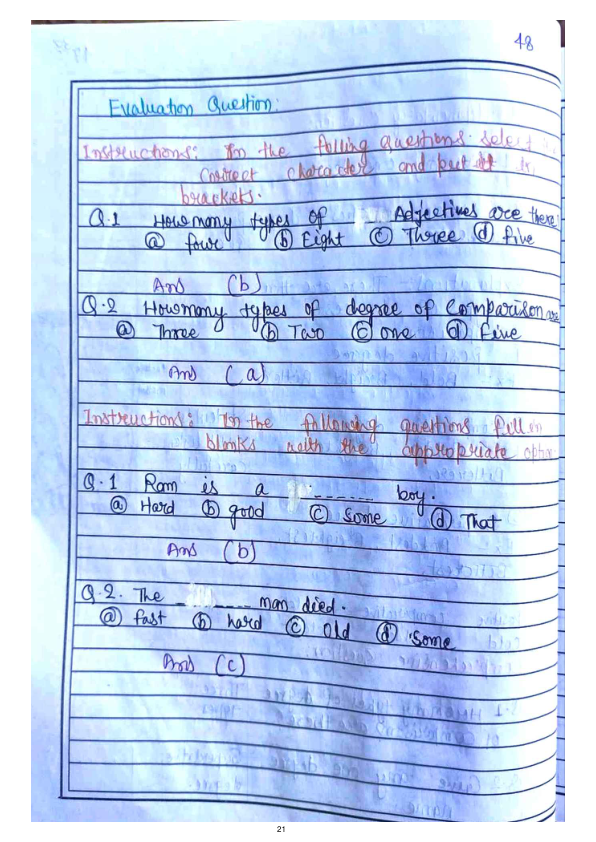 48
Evaluation Question:
Instructions: In the folling questions select
Correct character and put it in
brackets.
Q.1 Howmany types of Adjectives are there
(a) four (b) Eight (c) Three (d) five
Ans (b)
Q.2 Howmany types of degree of Comparison are
(a) Three (b) Two (c) one (d) Five
Ans (a)
Instructions: In the following questions fill in
blanks with the appropriate option
Q.1 Ram is a ------ boy.
(a) Hard (b) good (c) Some (d) That
Ans (b)
Q.2. The _ ____ man died.
(a) fast (b) hard (c) Old (d) Some
Ans (c)
21